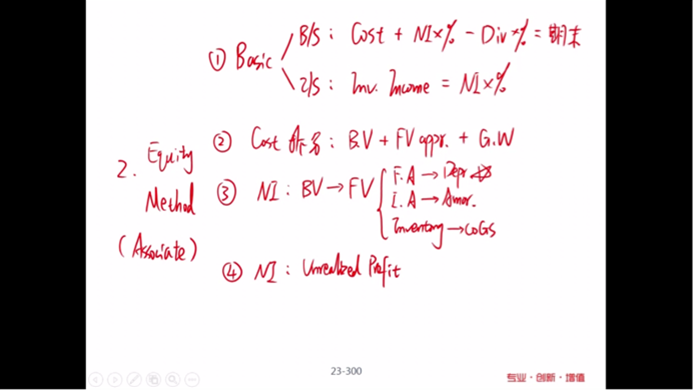 ① Basic
B/S : Cost + NI×% - Div×% = 期末
I/S : Inv. Income = NI×%
2. Equity Method (Associate)
② Cost : B.V + FV appr. + G.W
③ NI : BV → FV
F.A → Depr
I.A → Amor.
Inventory → COGS
④ NI : Unrealized Profit
23-300
专业·创新·增值